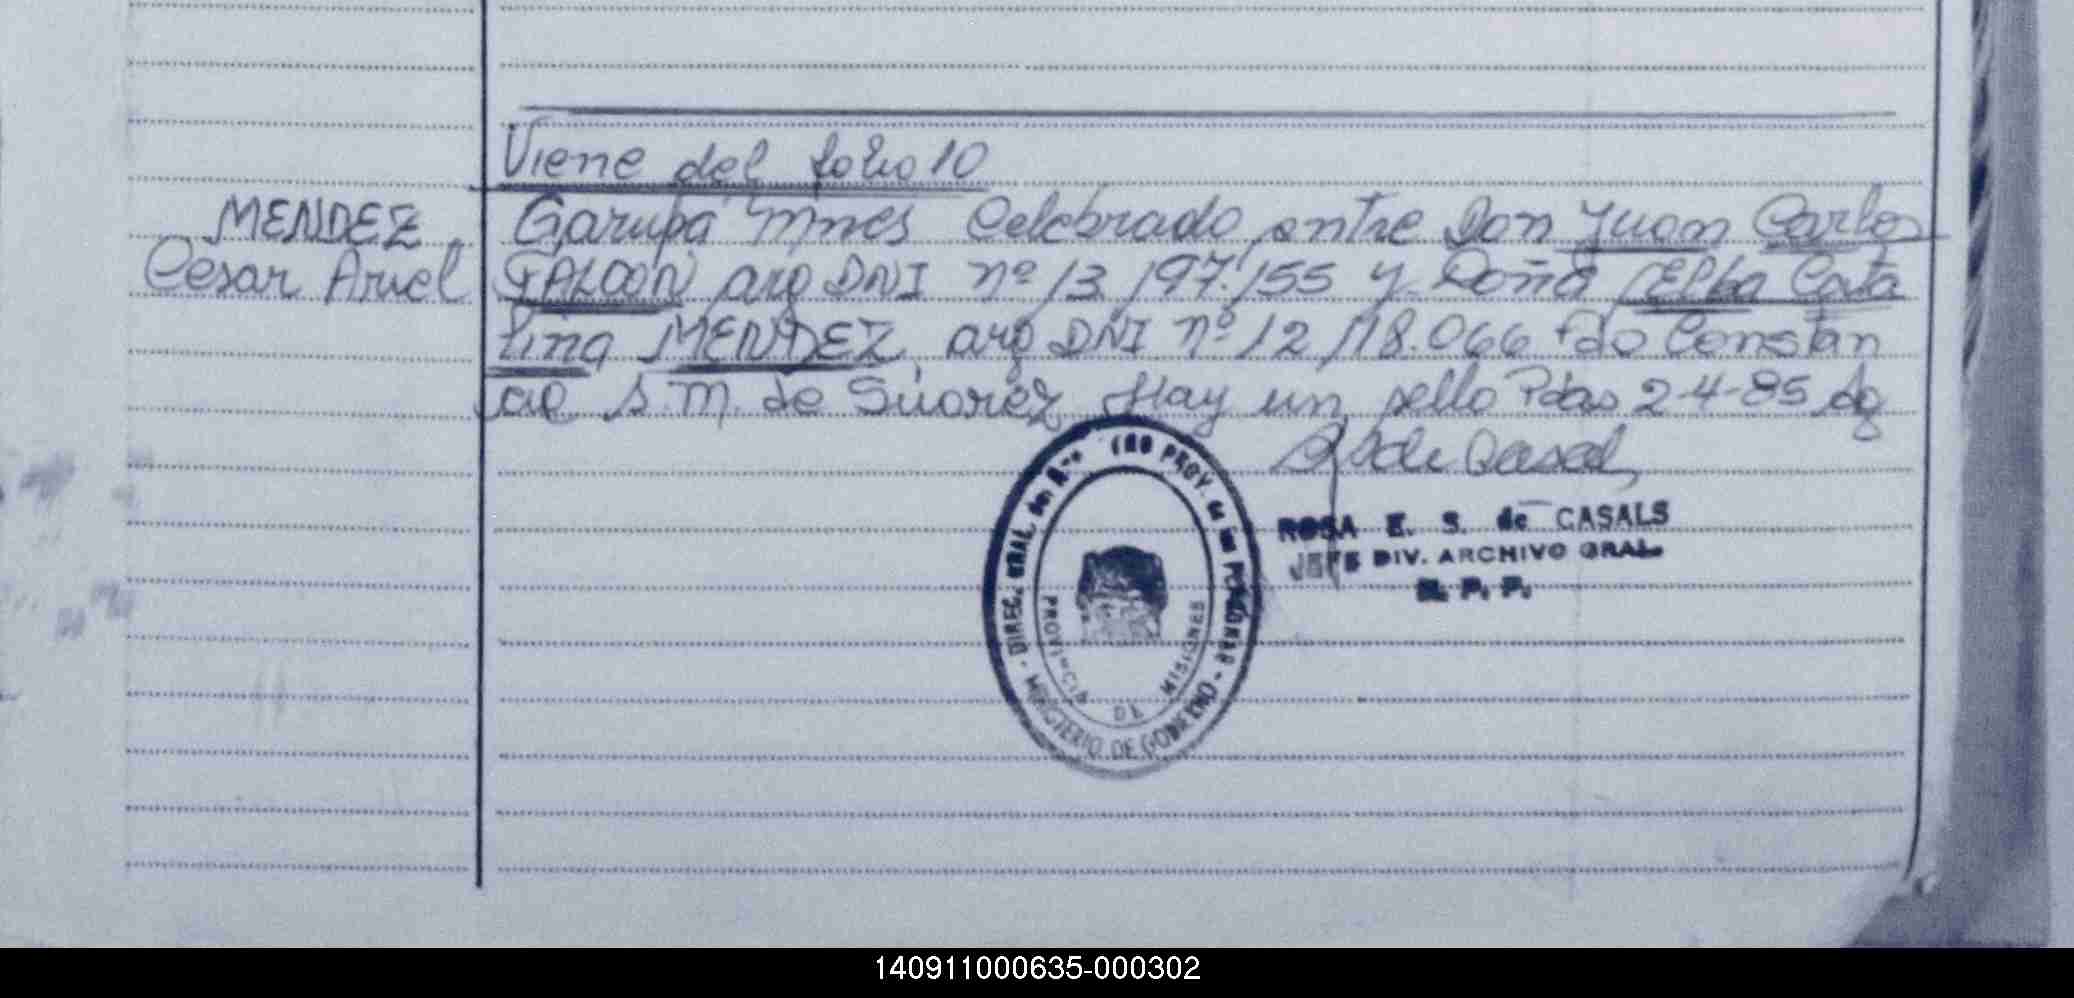 Viene del folio 10
MENDEZ
Cesar Ariel
Garupá Mnes Celebrado entre Don Juan Carlos
FALCON arg DNI nº 13.197.155 y Doña Elba Cata
lina MENDEZ, arg DNI nº 12.118.066 fdo Constan
cie S.M. de Suárez Hay un sello Pdas 2-4-85
ROSA E. S. de CASALS
JEFE DIV. ARCHIVO GRAL
R. P. P.
DIREC. GRAL. del PROV. de las PERSONAS - MINISTERIO DE GOBIERNO -
PROVINCIA DE MISIONES
140911000635-000302